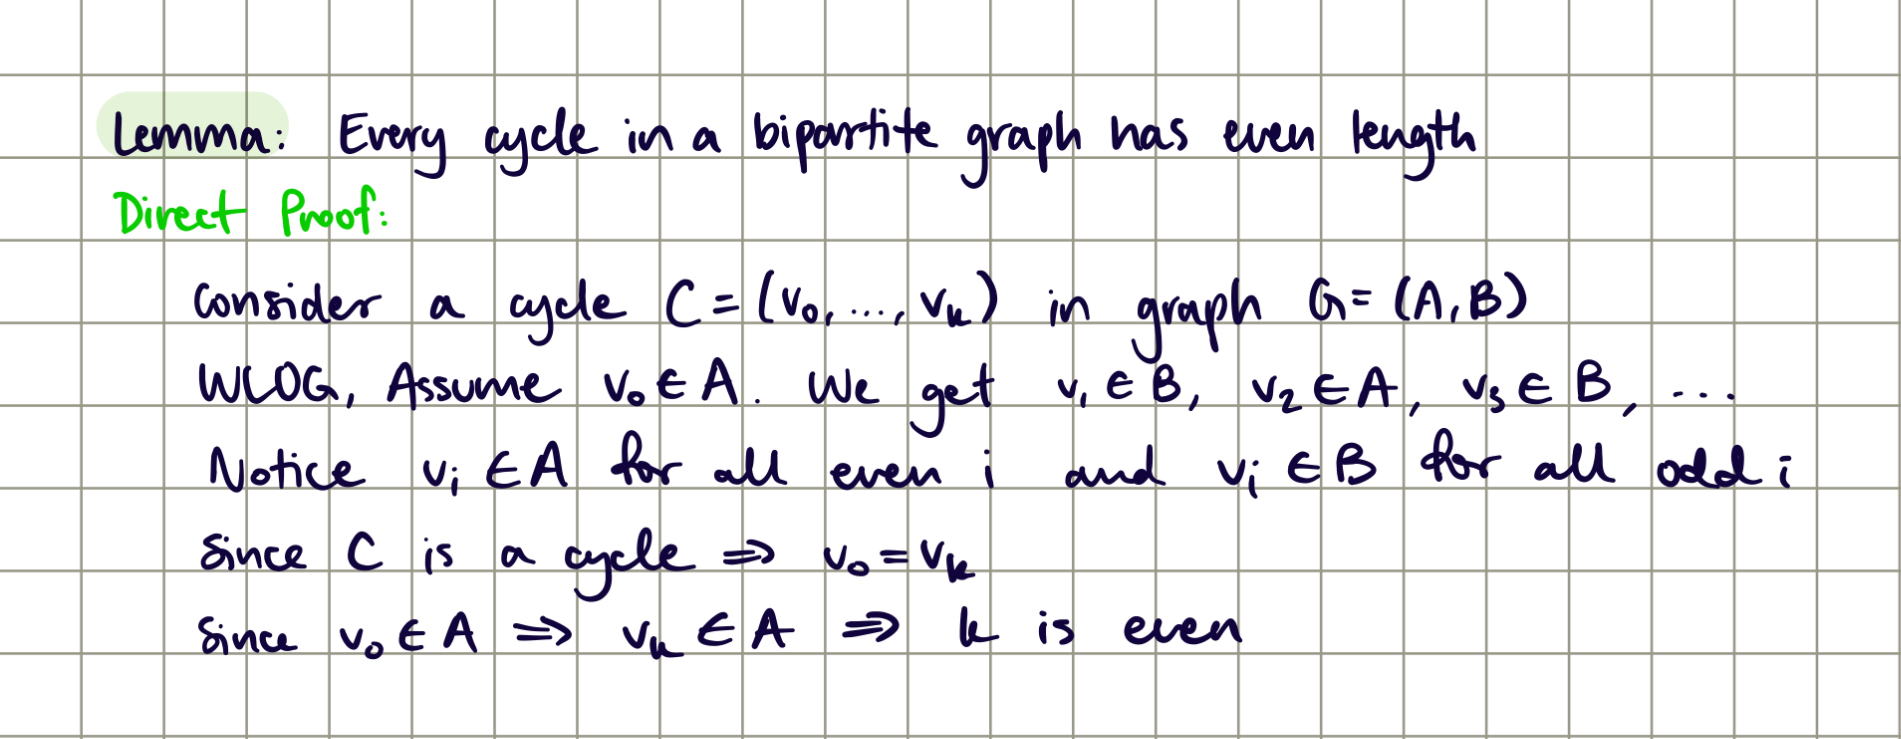 Lemma: Every cycle in a bipartite graph has even length
Direct Proof:
consider a cycle C = (v₀, ..., vₖ) in graph G = (A, B)
WLOG, Assume v₀ ∈ A. We get v₁ ∈ B, v₂ ∈ A, v₃ ∈ B, ...
Notice vᵢ ∈ A for all even i and vᵢ ∈ B for all odd i
since C is a cycle ⇒ v₀ = vₖ
since v₀ ∈ A ⇒ vₖ ∈ A ⇒ k is even